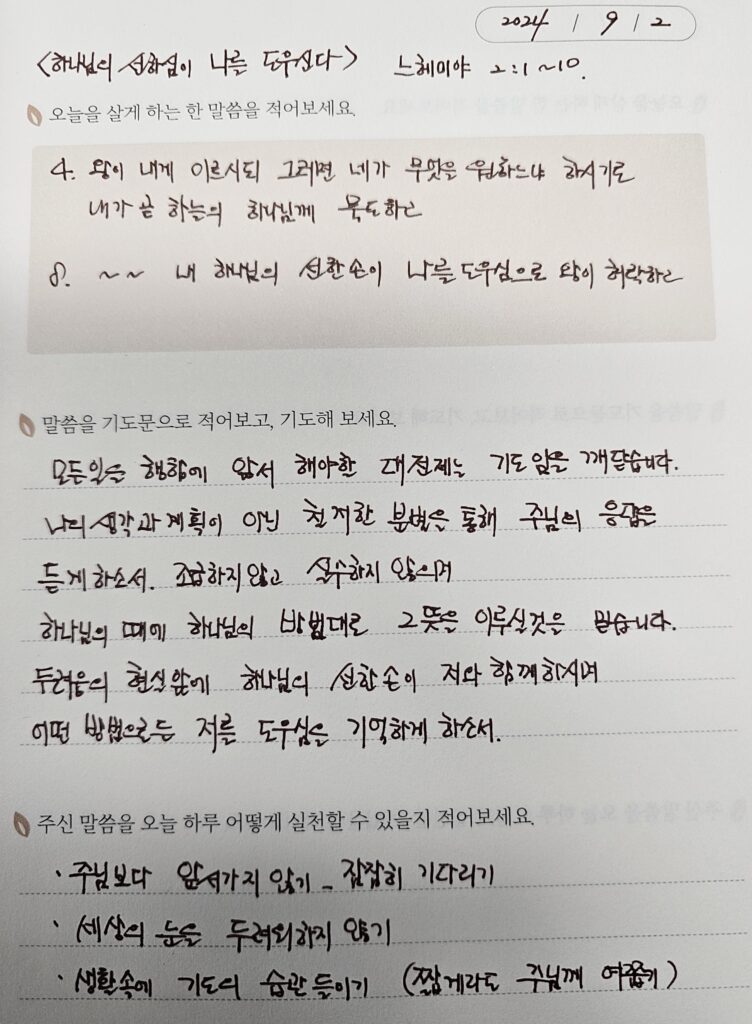 2024 / 9 / 2
<하나님의 선하심이 나를 도우신다> 느헤미야 2:1~10.
오늘을 살게 하는 한 말씀을 적어보세요.
4. 왕이 내게 이르시되 그러면 네가 무엇을 원하느냐 하시기로
내가 곧 하늘의 하나님께 묵도하고
8. ~~ 내 하나님의 선한손이 나를 도우심으로 왕이 허락하고
말씀을 기도문으로 적어보고, 기도해 보세요.
모든일을 행함에 앞서 해야한 대전제는 기도임을 깨닫습니다.
나의 생각과 계획이 아닌 철저한 분별을 통해 주님의 응답을
듣게하소서. 조급하지않고 실수하지 않으며
하나님의 때에 하나님의 방법대로 그 뜻을 이루실것을 믿습니다.
두려움의 현실앞에 하나님의 선한손이 저와 함께하시며
어떤 방법으로든 저를 도우심을 기억하게 하소서.
주신 말씀을 오늘 하루 어떻게 실천할 수 있을지 적어보세요.
· 주님보다 앞서가지 않기 - 잠잠히 기다리기
· 세상의 눈을 두려워하지 않기
· 생활속에 기도의 습관들이기 (짧게라도 주님께 여쭙기)